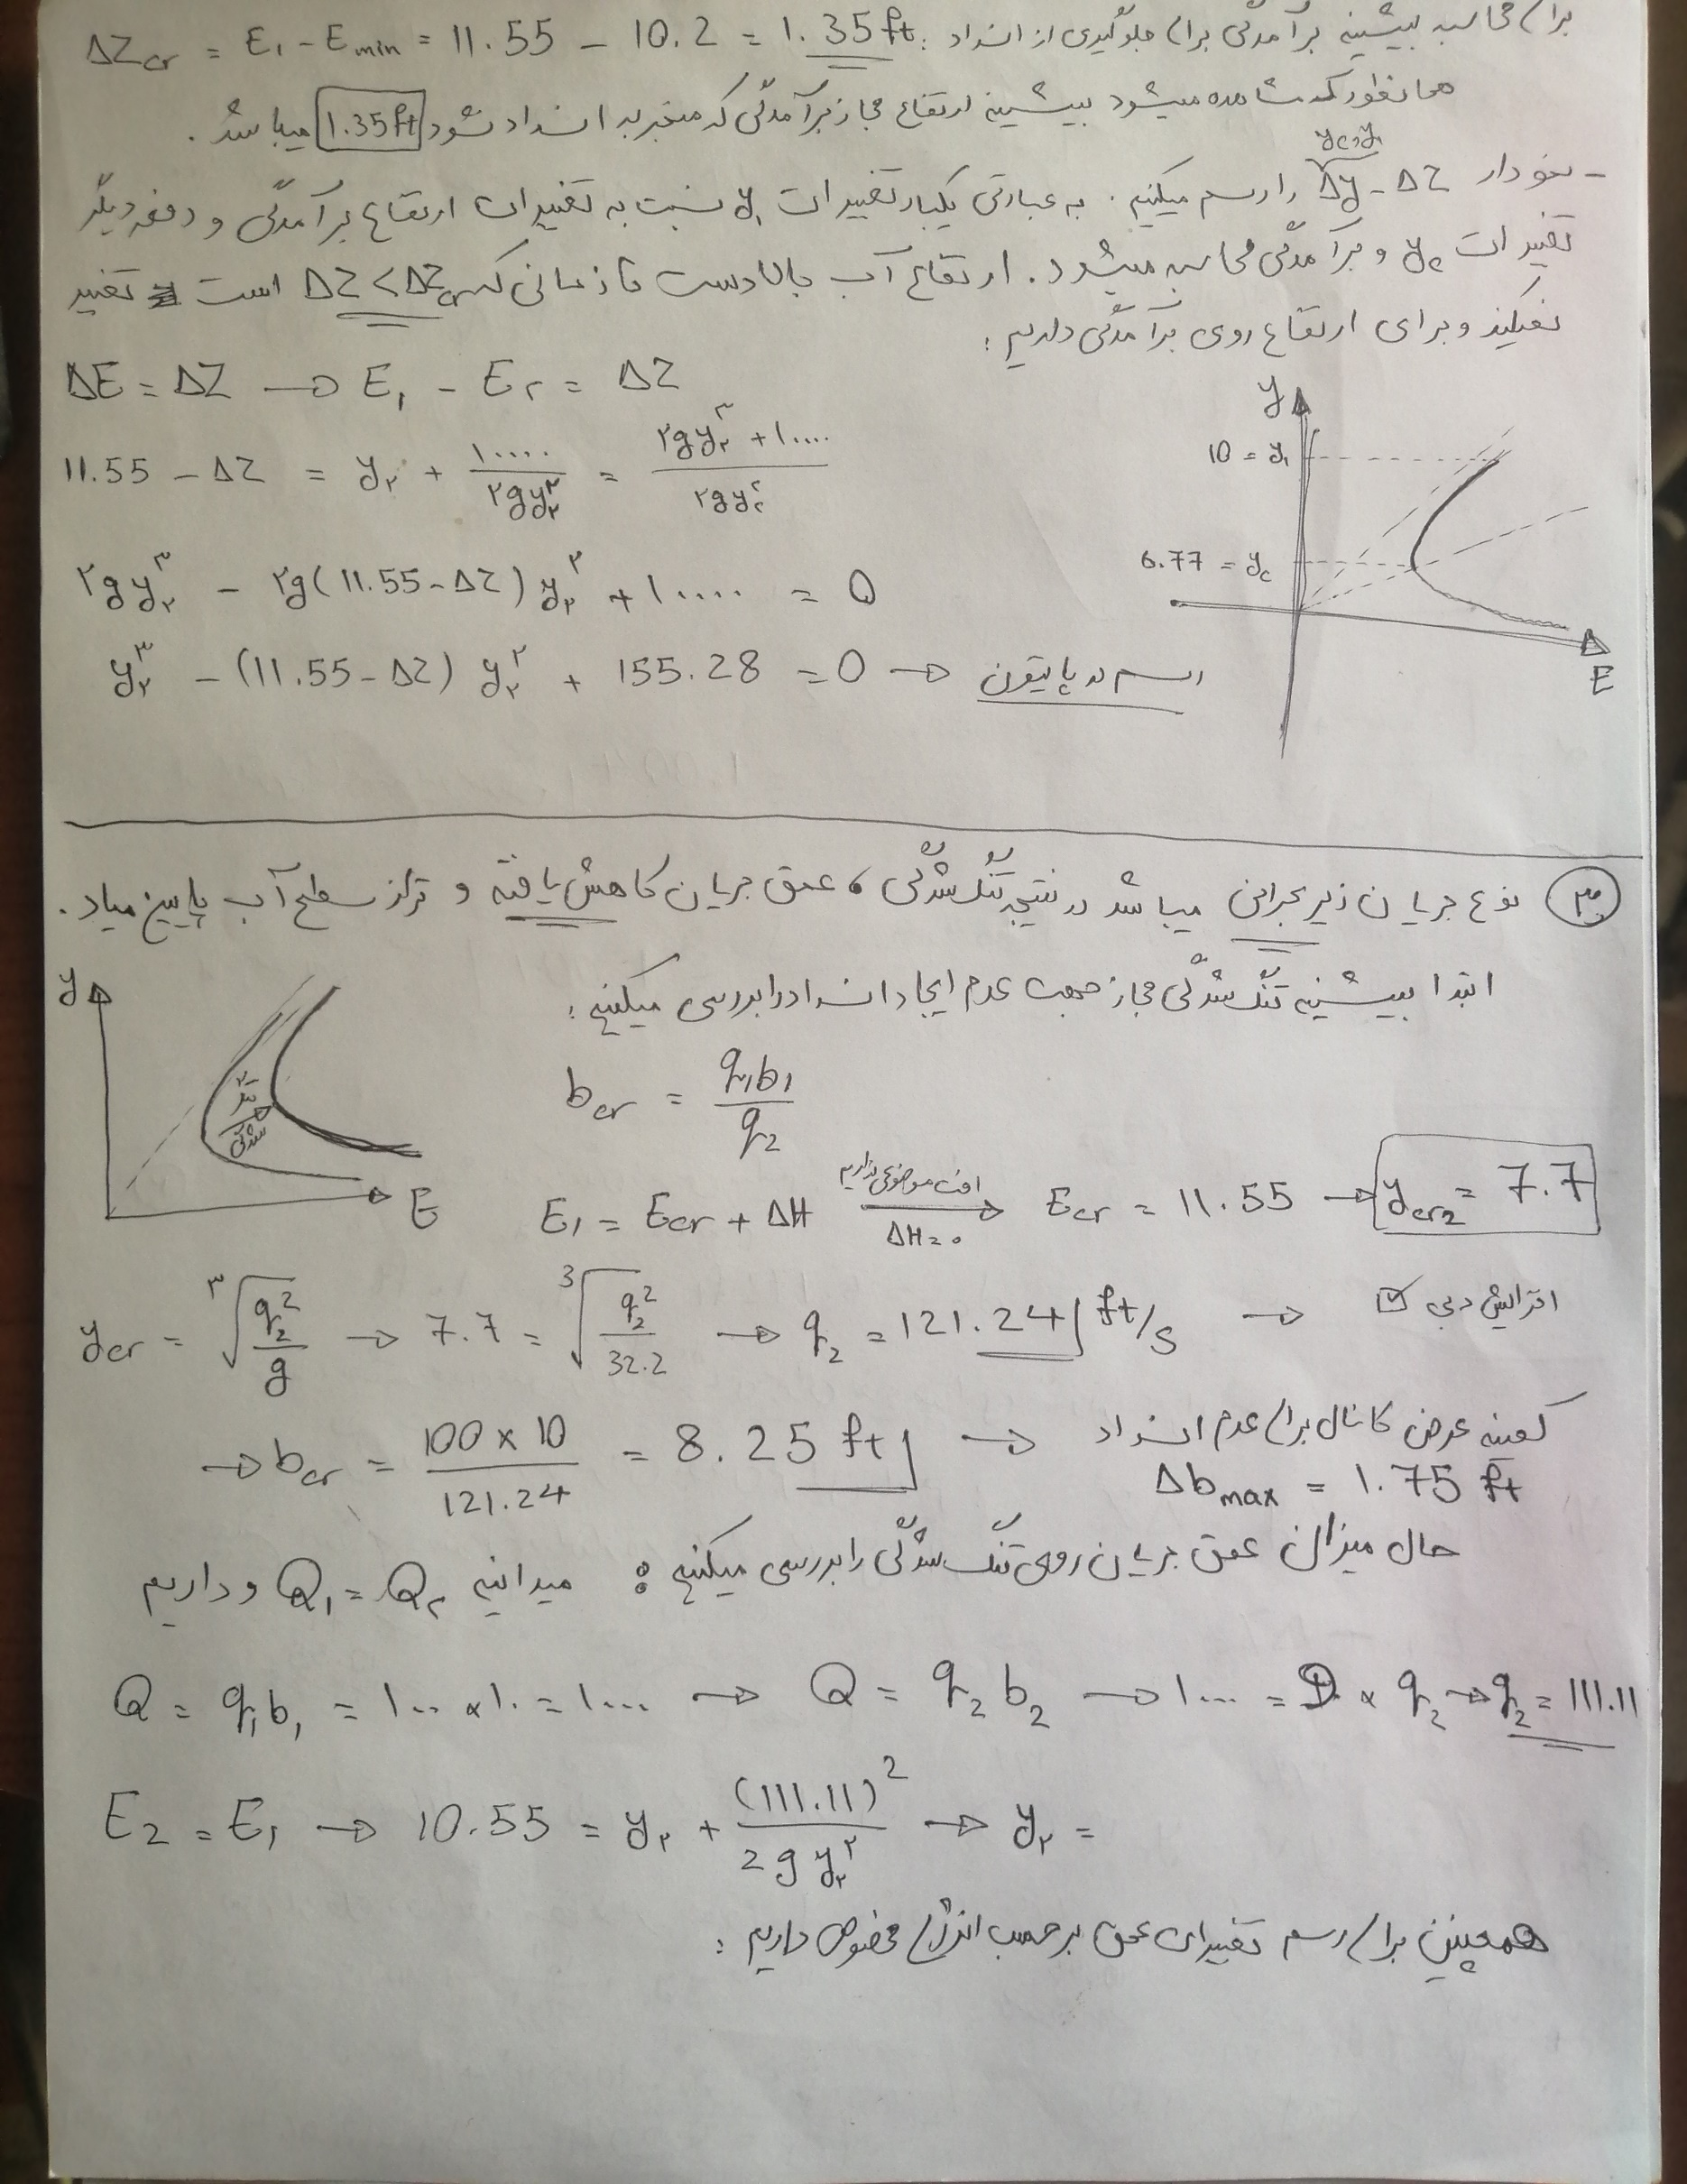 برای محاسبه بیشینه برآمدگی برای جلوگیری از انسداد: ΔZcr = E₁ - Emin = 11.55 - 10.2 = 1.35 ft
همانطور که مشاهده میشود بیشینه ارتفاع مجاز برآمدگی که منجر به انسداد نشود 1.35 ft میباشد.
- نمودار Δy - ΔZ را رسم میکنیم. به عبارتی یکبار تغییرات y₁ نسبت به تغییرات ارتفاع برآمدگی و دفعه دیگر
y₂, y₁
تغییرات y₂ و برآمدگی محاسبه میشود. ارتفاع آب بالادست تا زمانی که ΔZ < ΔZcr است تغییر
نمیکند و برای ارتفاع روی برآمدگی داریم:
ΔE = ΔZ → E₁ - E۲ = ΔZ
11.55 - ΔZ = y۲ + ۱۰۰۰۰ / ۲gy۲² = (۲gy۲³ + ۱۰۰۰۰) / ۲gy۲²
۲gy۲³ - ۲g(11.55 - ΔZ) y۲² + ۱۰۰۰۰ = 0
y۲³ - (11.55 - ΔZ) y۲² + 155.28 = 0 → رسم در پایتون
y
10 = y₁
6.77 = yc
E
۳. نوع جریان زیربحرانی میباشد در نتیجه تنگ شدگی، عمق جریان کاهش یافته و تراز سطح آب پایین میاد.
ابتدا بیشینه تنگ شدگی مجاز جهت عدم ایجاد انسداد را بررسی میکنیم:
y
تنگ شدگی
E
bcr = q₁b₁ / q₂
E₁ = Ecr + ΔH → افت موضعی نداریم ΔH = ۰ → Ecr = 11.55 → ycr₂ = 7.7
ycr = ³√(q₂² / g) → 7.7 = ³√(q₂² / 32.2) → q₂ = 121.24 ft/s → افزایش دبی ☑
→ bcr = 100 × 10 / 121.24 = 8.25 ft → کمینه عرض کانال برای عدم انسداد
Δbmax = 1.75 ft
حال میزان عمق جریان روی تنگ شدگی را بررسی میکنیم: میدانیم Q₁ = Q۲ و داریم
Q = q₁b₁ = ۱۰۰ × ۱۰ = ۱۰۰۰ → Q = q₂b₂ → ۱۰۰۰ = 9 × q₂ → q₂ = 111.11
E₂ = E₁ → 10.55 = y۲ + (111.11)² / 2gy۲² → y۲ =
همچنین برای رسم تغییرات عمق برحسب انرژی مخصوص داریم: